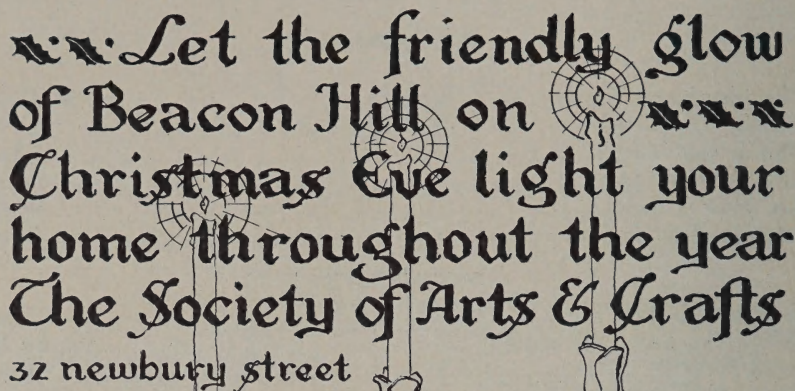 Let the friendly glow
of Beacon Hill on
Christmas Eve light your
home throughout the year
The Society of Arts & Crafts
32 newbury street